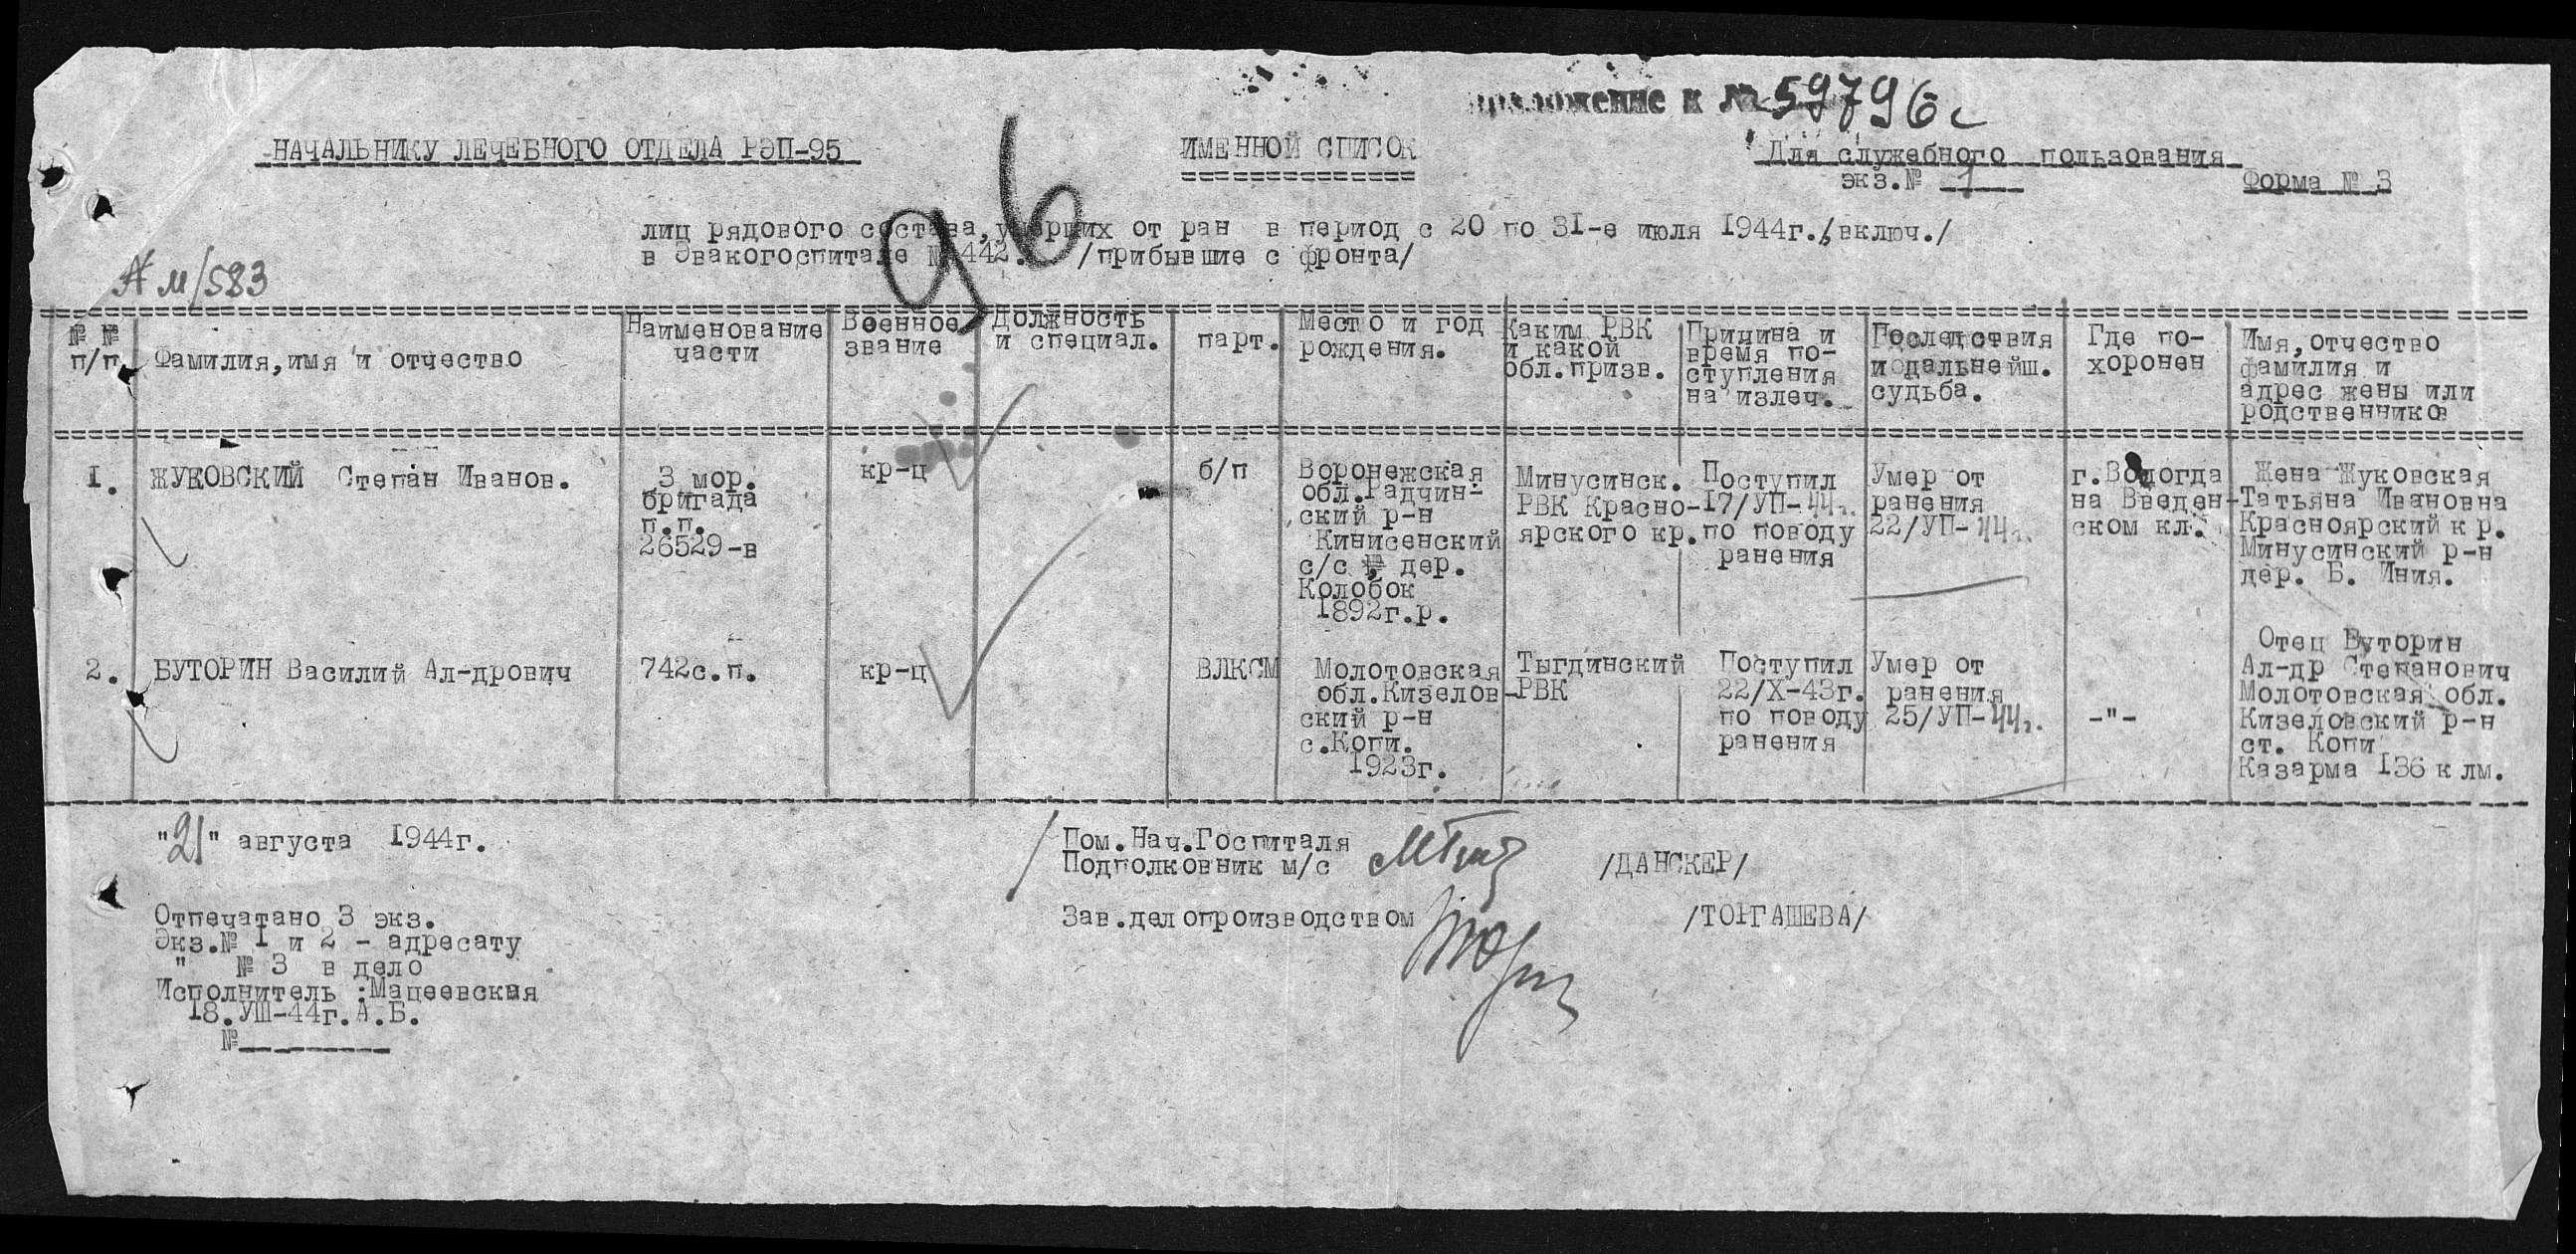 Приложение к № 59796с
НАЧАЛЬНИКУ ЛЕЧЕБНОГО ОТДЕЛА РЭП-95
ИМЕННОЙ СПИСОК
Для служебного пользования
экз.№ 1
Форма № 3
лиц рядового состава, умерших от ран в период с 20 по 31-е июля 1944г./включ./
в Эвакогоспитале № 442. /прибывшие с фронта/
96
м/583
№ №
п/п.
Фамилия, имя и отчество
Наименование
части
Военное
звание
Должность
и специал.
парт.
Место и год
рождения.
Каким РВК
и какой
обл.призв.
Причина и
время по-
ступления
на излеч.
Последствия
и дальнейш.
судьба.
Где по-
хоронен
Имя, отчество
фамилия и
адрес жены или
родственников
1.
ЖУКОВСКИЙ Степан Иванов.
3 мор.
бригада
п.п.
26529-в
кр-ц
б/п
Воронежская
обл.Радчин-
ский р-н
Кинисенский
с/с , дер.
Колобок
1892г.р.
Минусинск.
РВК Красно-
ярского кр.
Поступил
17/УП-44г.
по поводу
ранения
Умер от
ранения
22/УП-44г.
г.Вологда
на Введен-
ском кл.
Жена Жуковская
Татьяна Ивановна
Красноярский кр.
Минусинский р-н
дер. Б. Иния.
2.
БУТОРИН Василий Ал-дрович
742с.п.
кр-ц
ВЛКСМ
Молотовская
обл.Кизелов-
ский р-н
с.Копи.
1923г.
Тыгдинский
РВК
Поступил
22/Х-43г.
по поводу
ранения
Умер от
ранения
25/УП-44г.
-"-
Отец Буторин
Ал-др Степанович
Молотовская обл.
Кизеловский р-н
ст. Копи
Казарма 136 клм.
"21" августа 1944г.
Пом.Нач.Госпиталя
Подполковник м/с
/ДАНСКЕР/
Зав.делопроизводством
/ТОРГАШЕВА/
Отпечатано 3 экз.
Экз.№ 1 и 2 - адресату
" № 3 в дело
Исполнитель :Мацеевская
18.УШ-44г.А.Б.
№